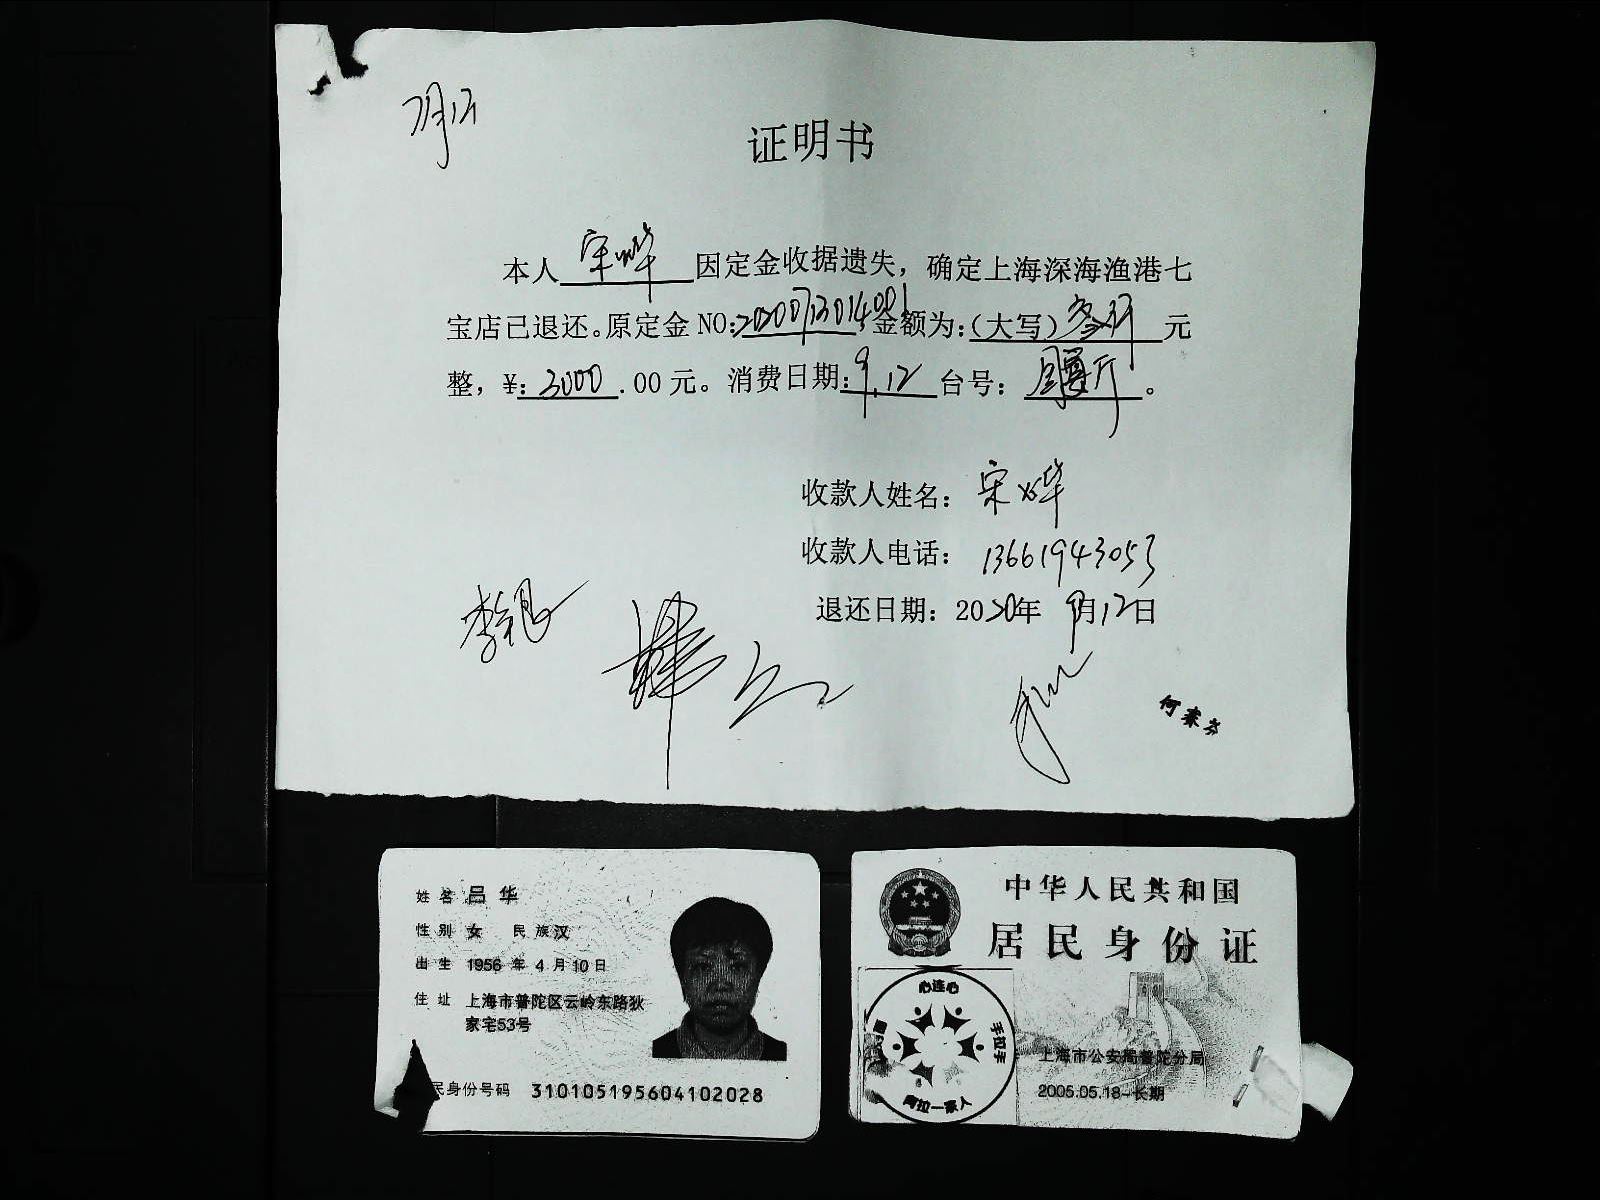 7月13
证明书
本人宋烨因定金收据遗失，确定上海深海渔港七
宝店已退还。原定金NO:202007301400，金额为:（大写）叁仟元
整，¥:3000.00元。消费日期:9.12台号：宴厅。
收款人姓名：宋烨
收款人电话：13661943053
退还日期：2020年9月12日
何森芬
姓名 吕华
性别 女 民族 汉
出生 1956年4月10日
住址 上海市普陀区云岭东路狄
家宅53号
民身份号码 310105195604102028
中华人民共和国
居民身份证
心连心
手拉手
阿拉一家人
上海市公安局普陀分局
2005.05.18-长期